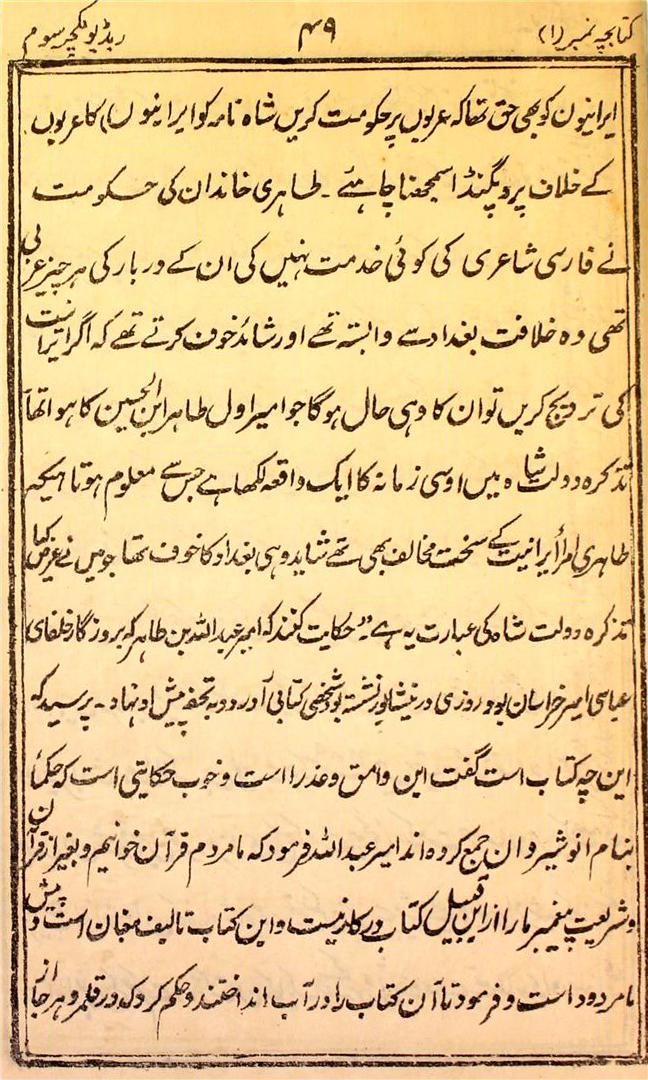 کتابچہ نمبر (۱) ۴۹ ریڈیو لکچر سوم
ایرانیون کو بھی حق تھا کہ عربوں پر حکومت کریں شاہ نامہ کو ایرانیوں) کا عربوں
کے خلاف پروپگنڈا سمجھنا چاہئے ۔ طاہری خاندان کی حکومت
نے فارسی شاعری کی کوئی خدمت نہیں کی ان کے دربار کی ہر چیز عربی
تھی وہ خلافت بغداد سے وابستہ تھے اور شائد خوف کرتے تھے کہ اگر ایرانیت
کی ترویج کریں تو ان کا وہی حال ہوگا جو امیر اول طاہر ابن الحسین کا ہوا تھا
تذکرہ دولت شاہ میں اوسی زمانہ کا ایک واقعہ لکھا ہے جس سے معلوم ہوتا ہیکہ
طاہری امرأ ایرانیت کے سخت مخالف بھی تھے شاید وہی بغداد کا خوف تھا جو میں نے عرض کیا
تذکرہ دولت شاہ کی عبارت یہ ہے ۔" حکایت کنند کہ امیر عبداللہ بن طاہر کہ بروزگار خلفای
عباسی امیر خراسان بود روزی در نیشاپور نشستہ بود شخصی کتابی آورد و بہ تحفہ پیش او نہاد ۔ پرسید کہ
این چہ کتاب است گفت این وامق و عذرا است و خوب حکایتی است کہ حکمأ
بنام انوشیروان جمع کردہ اند امیر عبداللہ فرمود کہ ما مردم قرآن خوانیم و بغیر از قرآن
و شریعت پیغمبر ما را از این قبیل کتاب درکار نیست و این کتاب تالیف مغان است و پیش
ما مردود است و فرمود تا آن کتاب را در آب انداختند و حکم کرد کہ در قلمرو ہر جا از